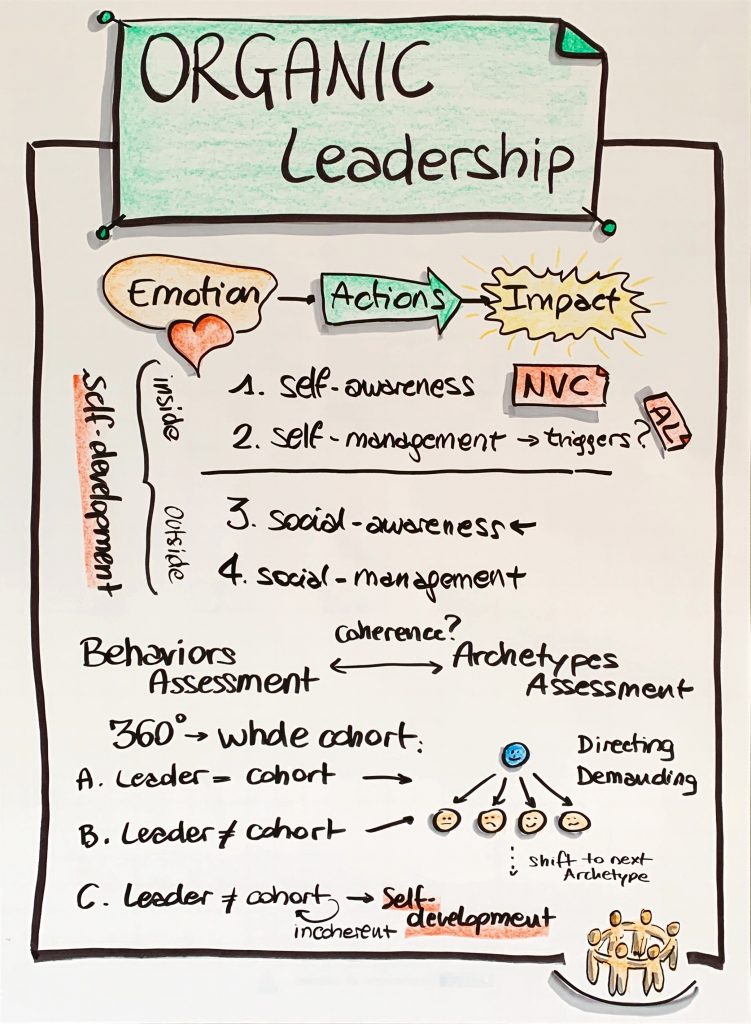 ORGANIC
Leadership
Emotion → Actions → Impact
self-development
inside
outside
1. self-awareness
NVC
2. self-management → triggers?
AL
3. social-awareness ←
4. social-management
coherence?
Behaviors
Assessment
↔
Archetypes
Assessment
360° → whole cohort:
A. Leader = cohort →
B. Leader ≠ cohort →
Directing
Demanding
shift to next
Archetype
C. Leader ≠ cohort → Self-
development
incoherent